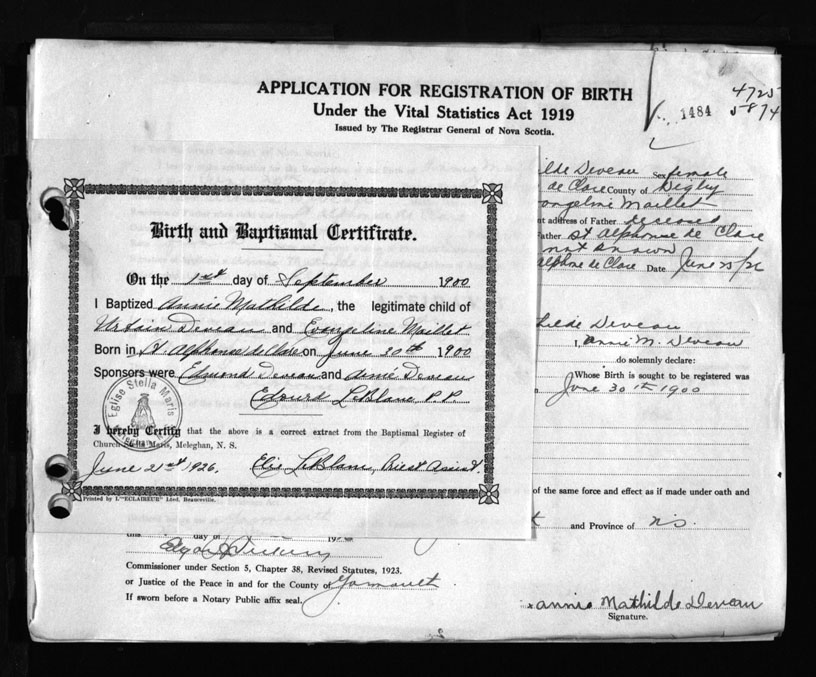 APPLICATION FOR REGISTRATION OF BIRTH
Under the Vital Statistics Act 1919
Issued by The Registrar General of Nova Scotia.
1484
4725
5874
ilde Deveau Sex female
de Clare County of Digby
Evangeline Maillet
nt address of Father deceased
Father St Alphonse de Clare
not known
Alphonse de Clare Date June 25/26
Birth and Baptismal Certificate.
On the 1st day of September 1900
I Baptized Annie Mathilde, the legitimate child of
Urbain Deveau and Evangeline Maillet
Born in St. Alphonse de Clare on June 30th 1900
Sponsors were Edmond Deveau and Annie Deveau
Edouard LeBlanc P.P.
Eglise Stella Maris
I hereby Certify that the above is a correct extract from the Baptismal Register of
Church Stella Maris, Meteghan, N. S.
June 21st 1926. Elie LeBlanc, Priest Assist.
Printed by L'"ECLAIREUR" Lted. Beauceville.
hilde Deveau
I, Annie M. Deveau
do solemnly declare:
Whose Birth is sought to be registered was
June 30th 1900
of the same force and effect as if made under oath and
and Province of N.S.
this day of 192
Commissioner under Section 5, Chapter 38, Revised Statutes, 1923.
or Justice of the Peace in and for the County of Yarmouth
If sworn before a Notary Public affix seal.
x Annie Mathilde Deveau
Signature.